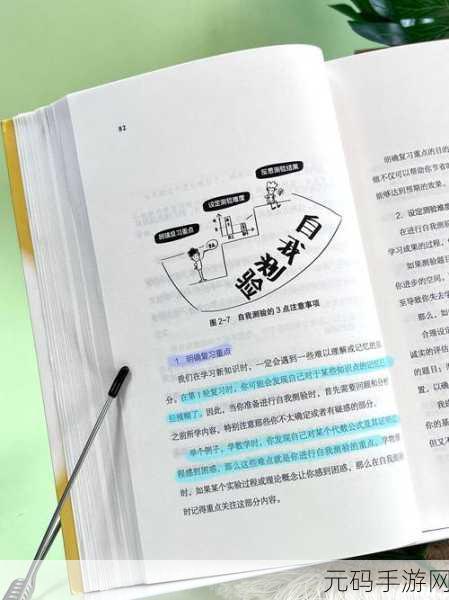 82
反思测验结果
设定测验难度
明确复习重点
自我测验
图 2-7 自我测验的 3 点注意事项
1. 明确复习重点
我们在学习新知识时，一定会遇到一些难以理解或记忆的部
分。在第 1 轮复习时，你可能会发现自己对于某些知识点的记忆已
经模糊了。因此，当你准备进行自我测验时，首先需要回顾和分析
之前所学内容，特别注意那些你不太确定或者有疑惑的部分。
举个例子，学数学时，你发现自己对某个代数公式及其证明过
程感到困惑，那么这些难点就是你进行自我测验的重点。学物理
时，如果某个实验过程或理论概念让你感到困惑，那么在自我测验
时记得重点关注这部分内容。
明确复习重点的目的
仅可以帮助你节省时
能够达到预期的效果。
2. 设定测验难度
在进行自我测
学习成果的过程，
如果测验题
你进步的空间，
至导致你失去学
那么，如
合理设
诚实的评估
的题目；
置，以确
我们
但又不
元码手游网